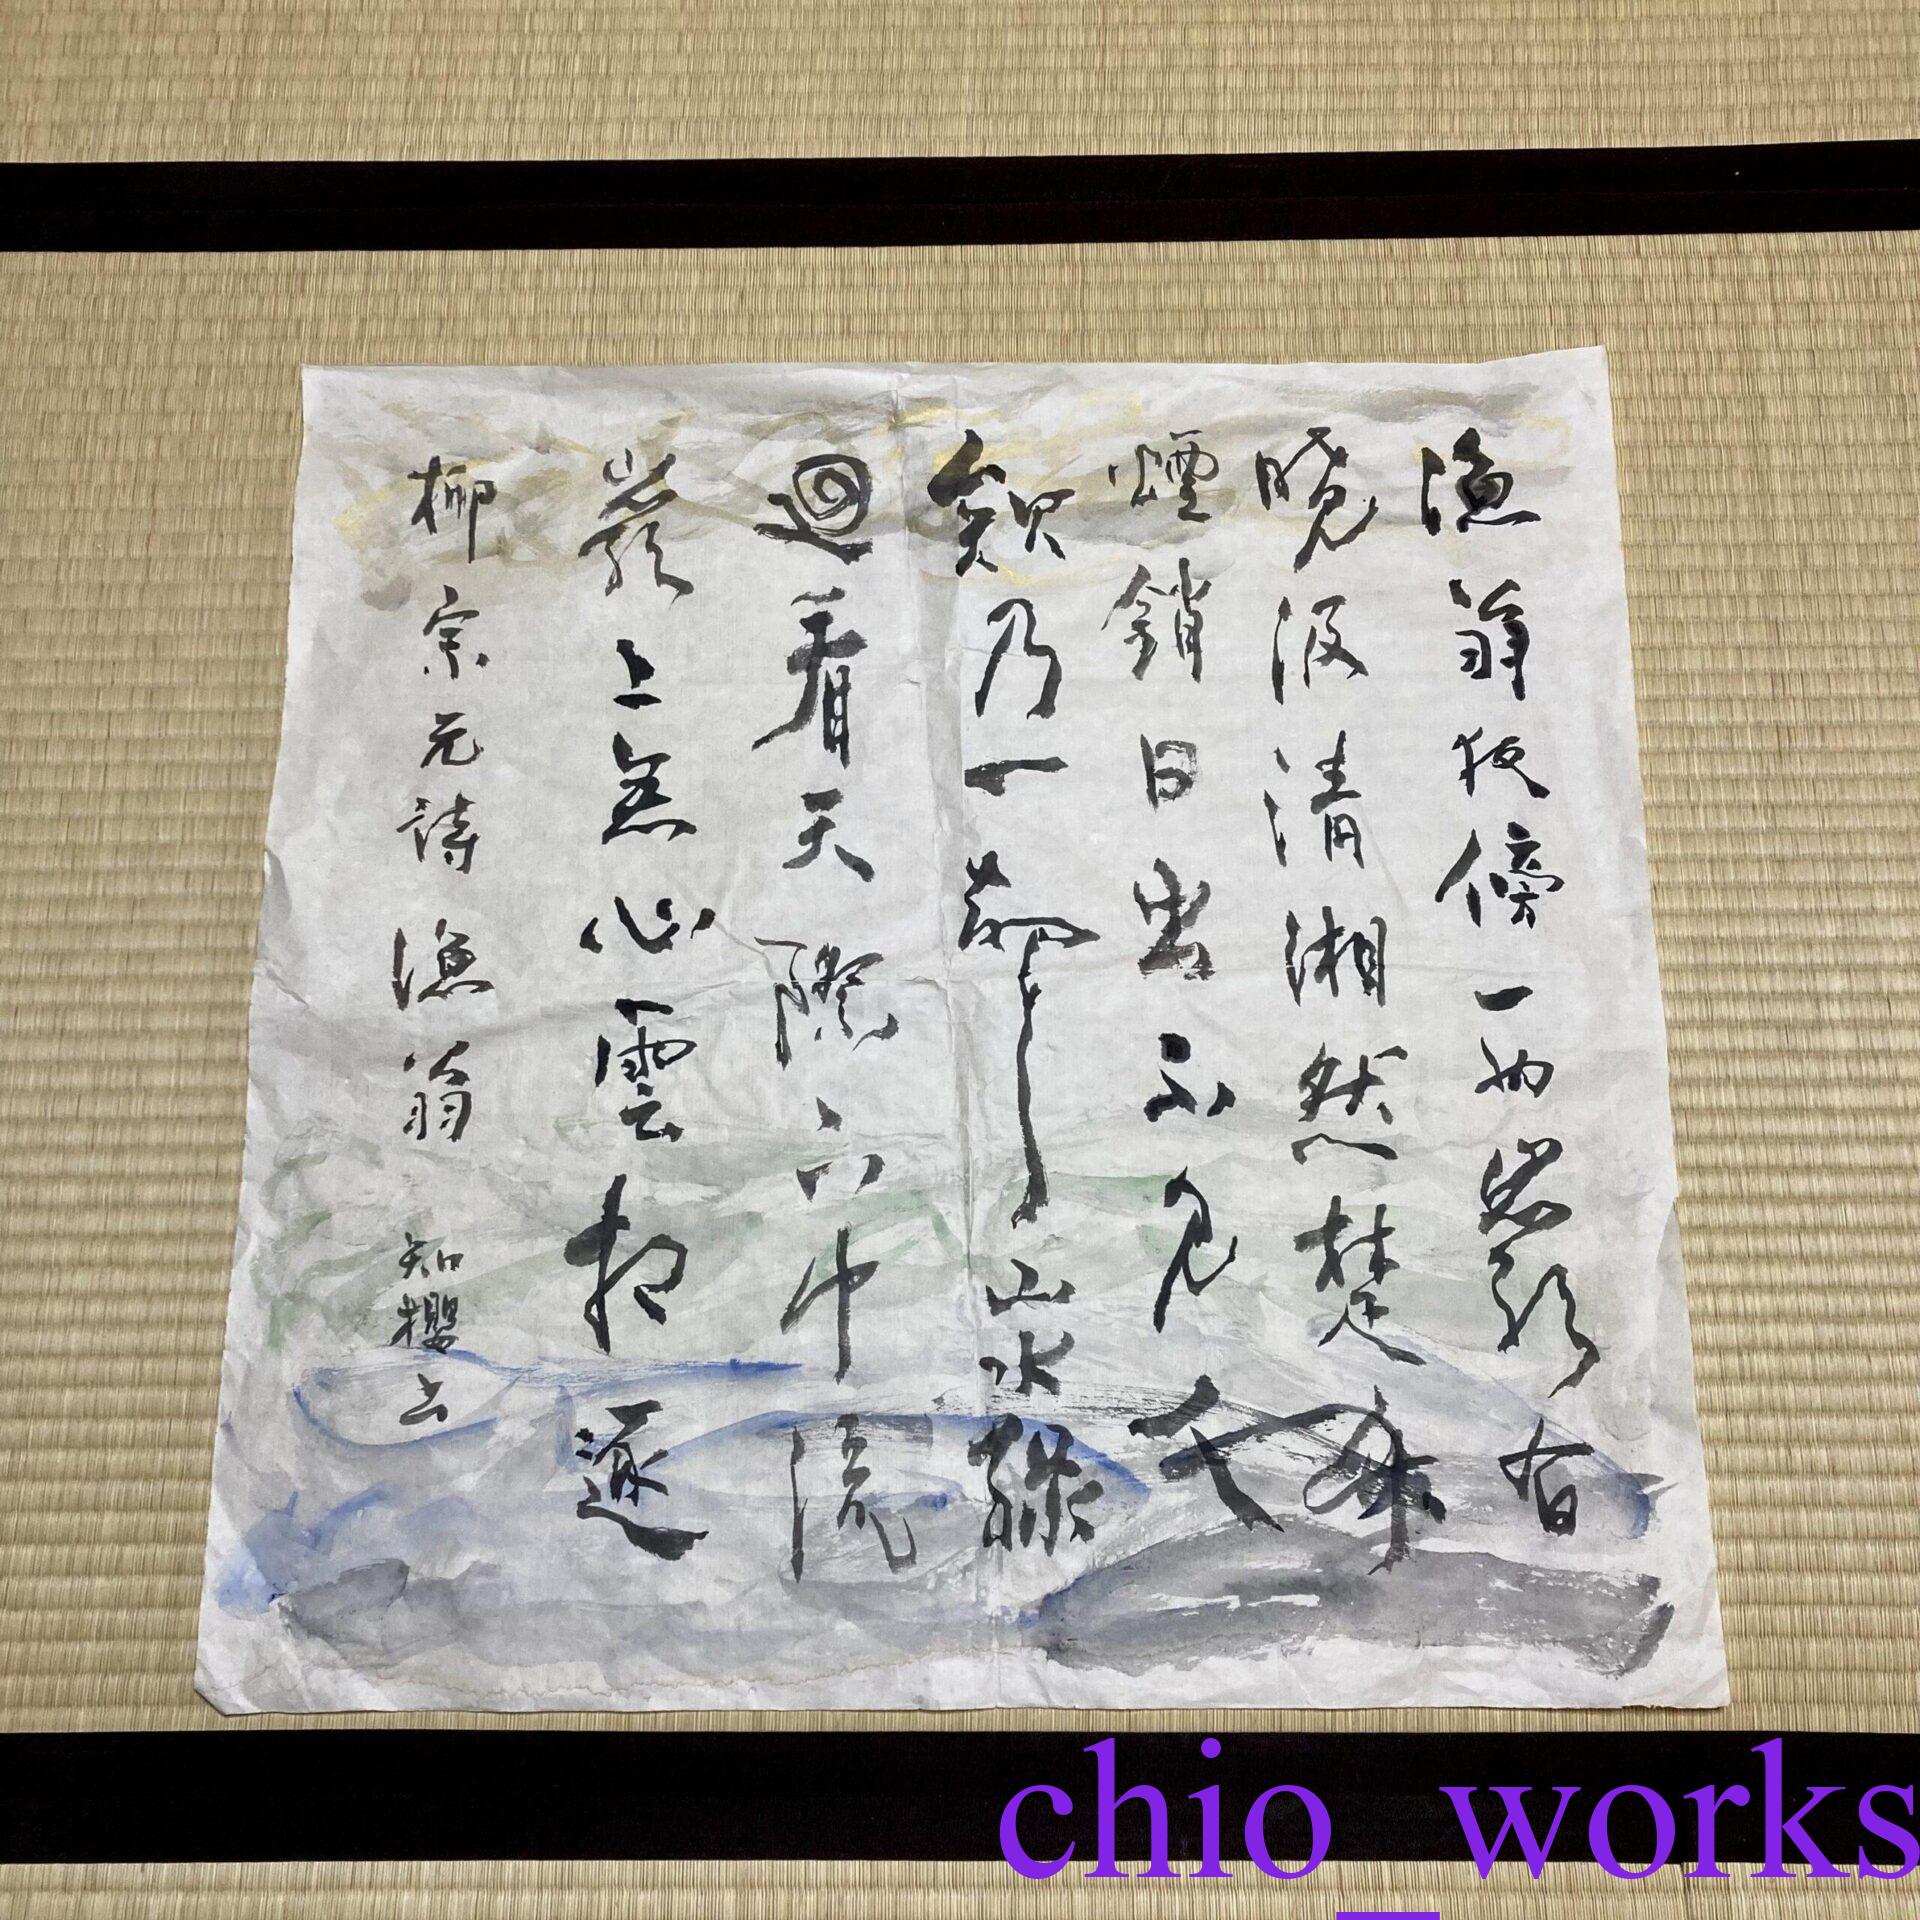 漁翁夜傍西巖宿
曉汲清湘然楚竹
煙銷日出不見人
欸乃一聲山水綠
迴看天際下中流
巖上無心雲相逐
柳宗元詩 漁翁 知櫻
chio_works